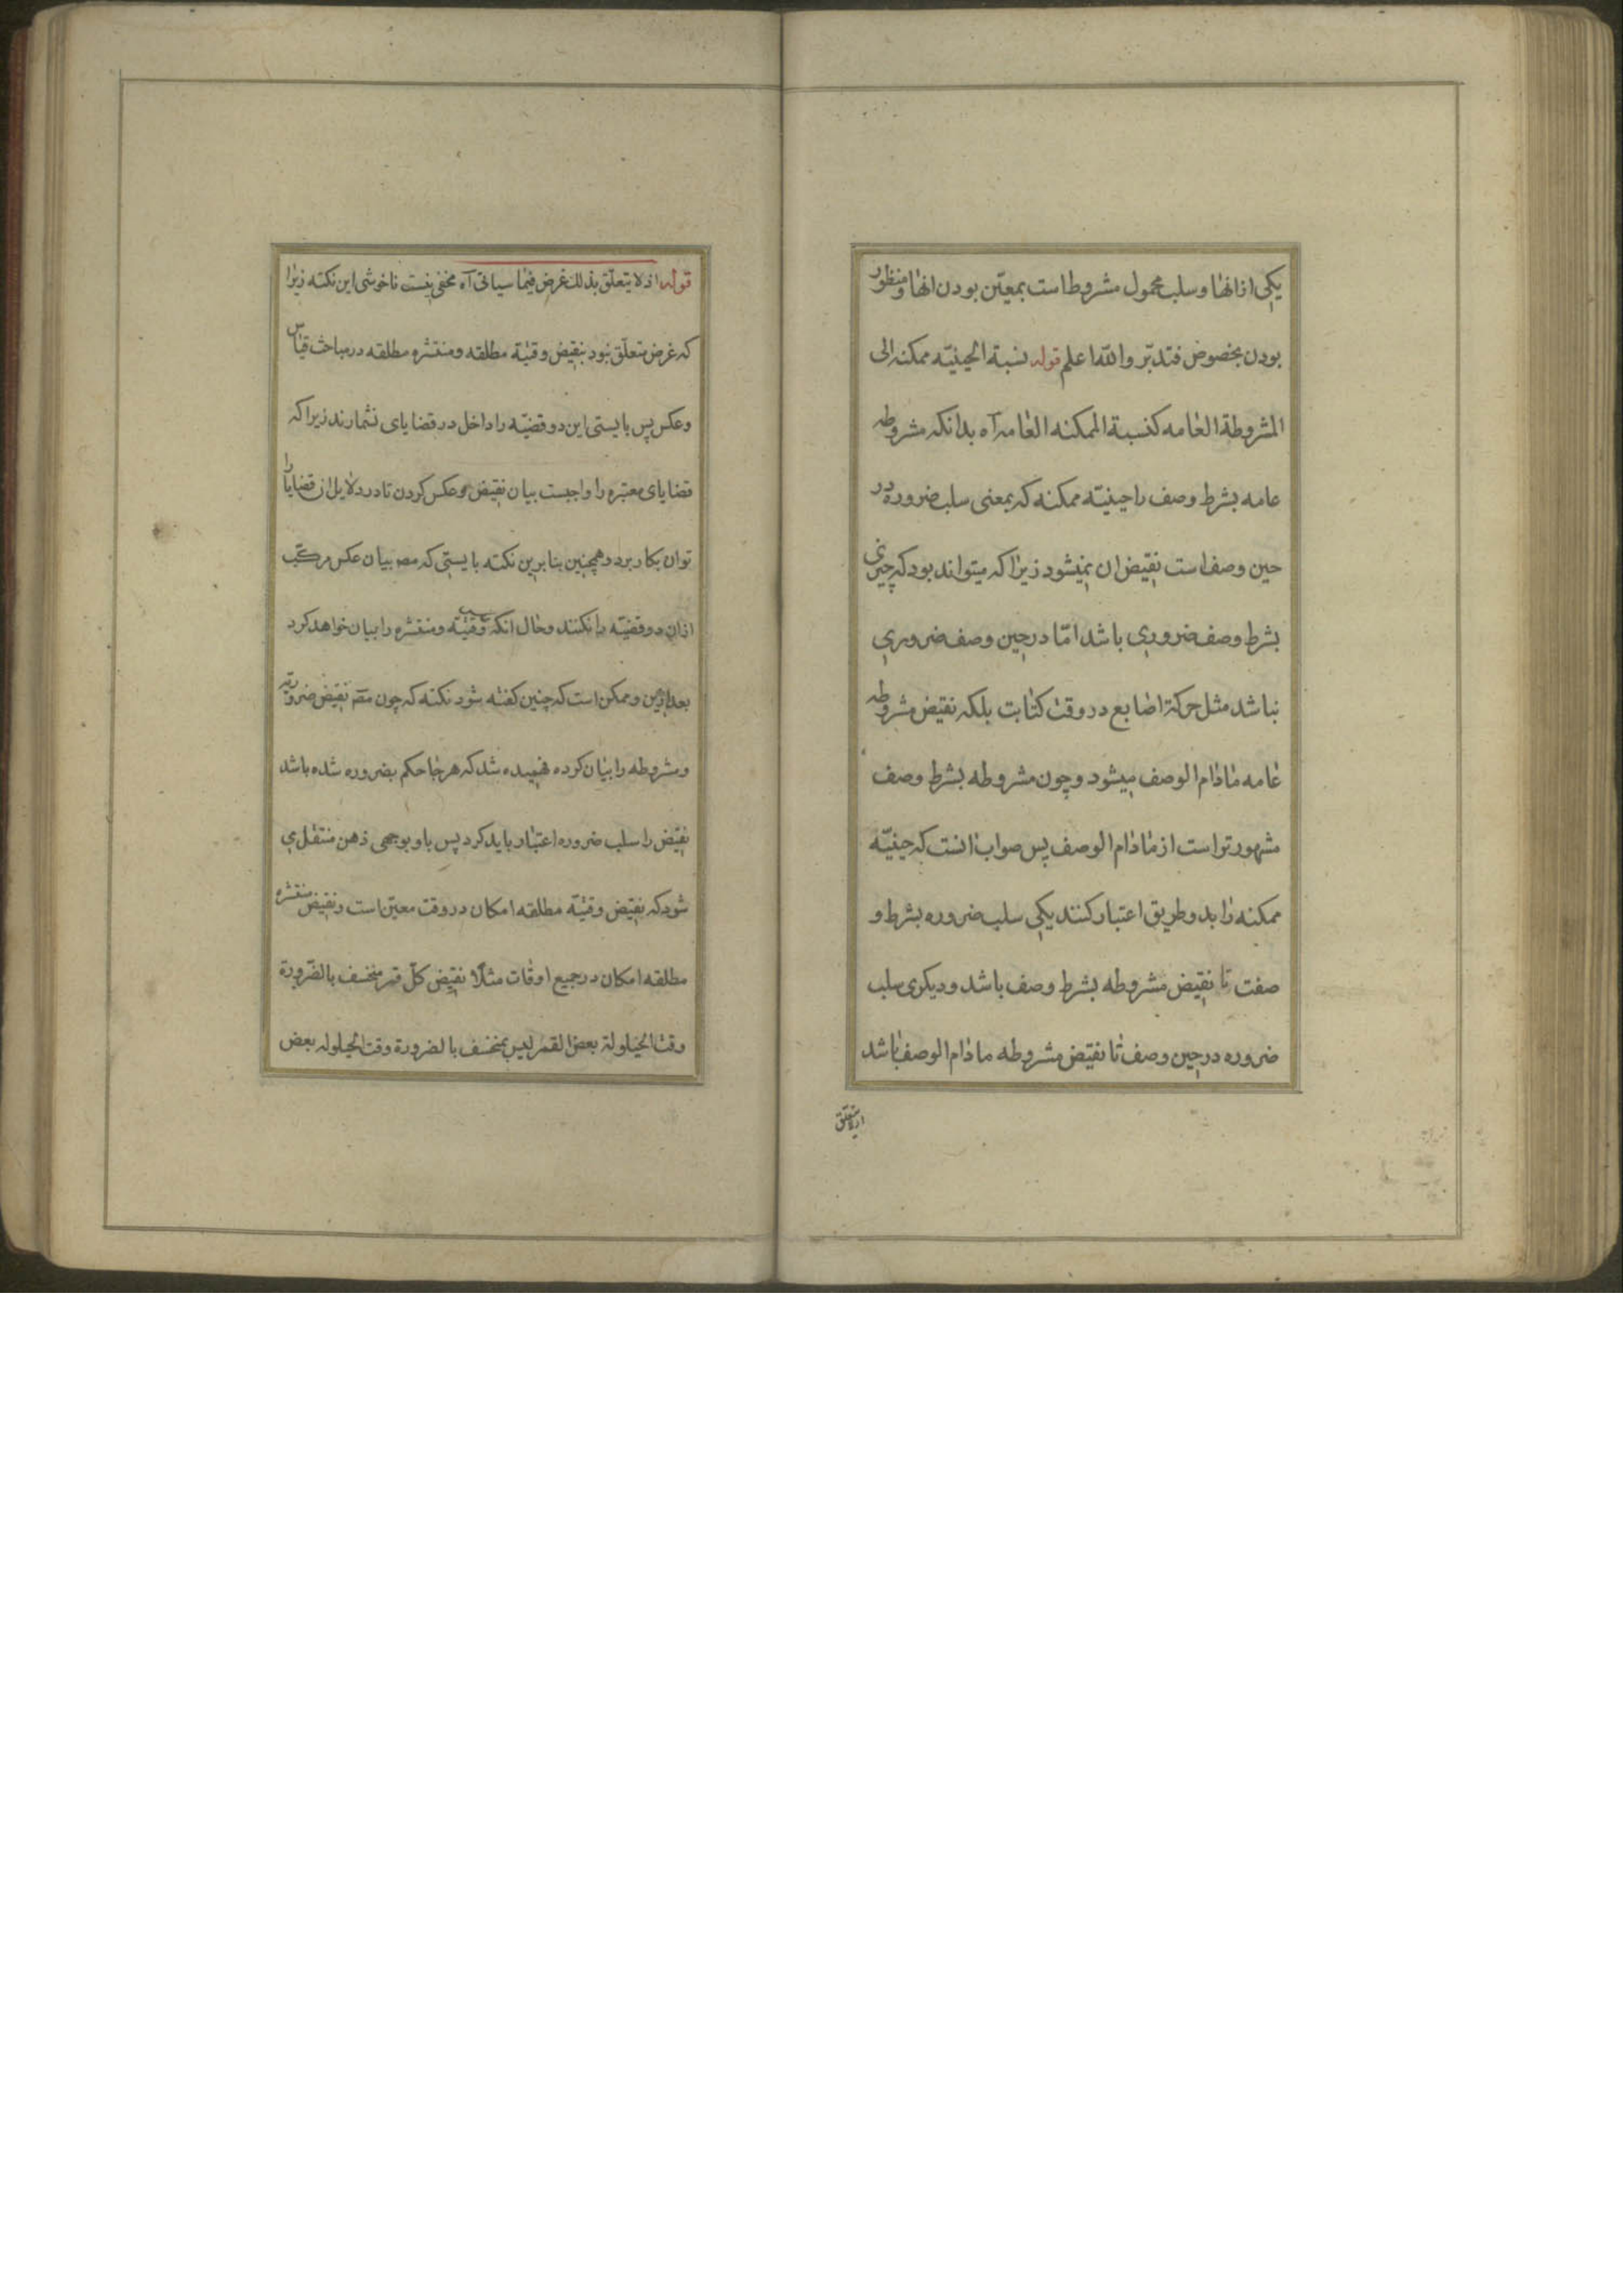 یکی از انها و سلب محمول مشروط است بمعین بودن انها و منظور
بودن بخصوص فتدبّر واللّه اعلم قوله نسبة الحینیّه ممکنه الی
المشروطة العامه کنسبة الممکنه العامه آه بدانکه مشروطه
عامه بشرط وصف را حینیّه ممکنه که بمعنی سلب ضرورة در
حین وصف است نقیض ان نمیشود زیرا که میتواند بود که چیزی
بشرط وصف ضروری باشد امّا در حین وصف ضروری
نباشد مثل حرکة اصابع در وقت کتابت بلکه نقیض مشروطه
عامه مادام الوصف میشود و چون مشروطه بشرط وصف
مشهورتر است از مادام الوصف پس صواب انست که حینیّه
ممکنه را بدو طریق اعتبار کنند یکی سلب ضروره بشرط و
صفت تا نقیض مشروطه بشرط وصف باشد و دیکری سلب
ضروره در حین وصف تا نقیض مشروطه مادام الوصف باشد
اذ لا یتعلق
قوله اذ لا یتعلّق بذلک غرض فیما سیاتی آه مخفی نیست ناخوشی این نکته زیرا
که غرض متعلّق نبود بنقیض وقتیّة مطلقه و منتشره مطلقه در مباحث قیاس
و عکس پس بایستی این دو قضیّه را داخل در قضایای نشمارند زیرا که
قضایای معتبره را واجبست بیان نقیض و عکس کردن تا در دلایل ان قضایا را
توان بکار برد و همچنین بنا برین نکته بایستی که مصـ بیان عکس مرکّب
ازان دو قضیّه را نکنند و حال انکه عکس وقتیّه و منتشره را بیان خواهد کرد
بعد ازین و ممکن است که چنین کفته شود نکته که چون مصـ نقیض ضروریّه
و مشروطه را بیان کرده فهمیده شد که هر جا حکم بضروره شده باشد
نقیض را سلب ضروره اعتبار باید کرد پس باو بوجهی ذهن منتقل می
شود که نقیض وقتیّه مطلقه امکان در وقت معیّن است و نقیض منتشره
مطلقه امکان در جمیع اوقات مثلا نقیض کلّ قمر منخسف بالضّرورة
وقت الحیلولة بعض القمر لیس بمنخسف بالضرورة وقت الحیلوله بعض